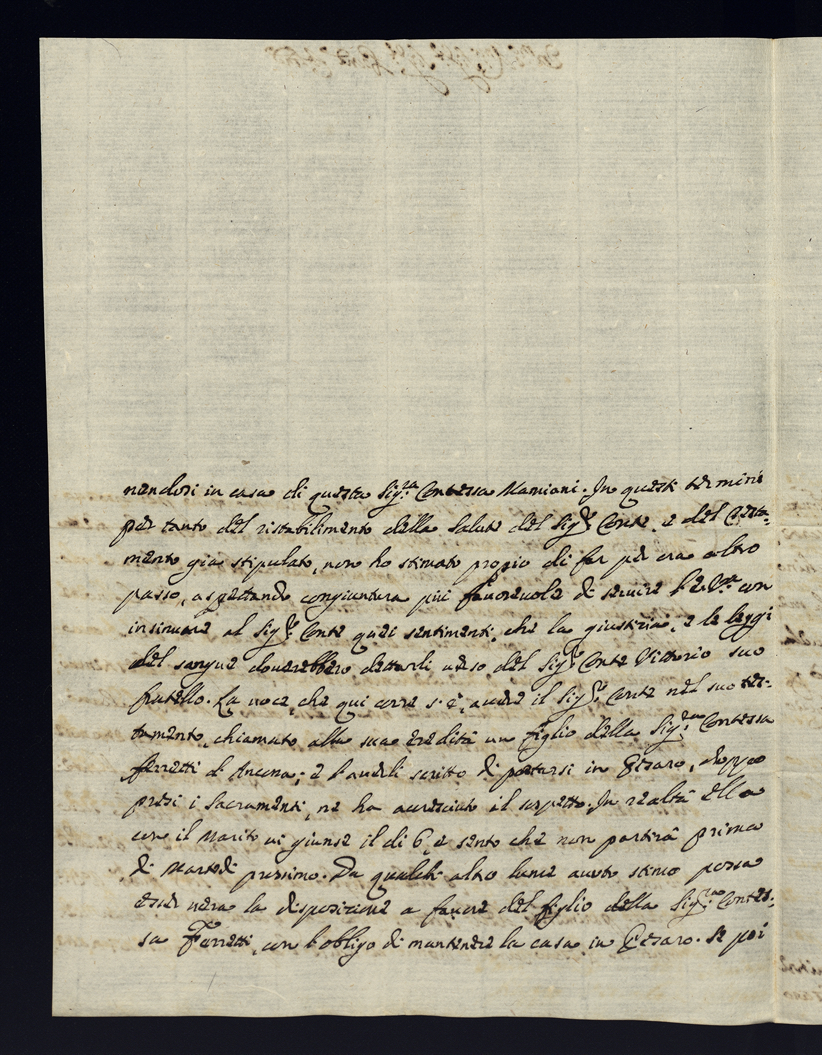 nendosi in casa di questa Sig.ra Contessa Mamiani. In questi termini
per tanto del ristabilimento della salute del Sig.r Conte, e del Testa-
mento già stipulato, non ho stimato proprio di far per ora altro
passo, aspettando congiuntura più favorevole di servire l'E. V.ra con
insinuare al Sig.r Conte quei sentimenti, che la giustizia, e le leggi
del sangue dovrebbero dettarli verso del Sig.r Conte Vittorio suo
fratello. La voce, che qui corre s'è, avere il Sig.r Conte nel suo tes-
tamento, chiamato alla sua eredità un figlio della Sig.ra Contessa
Ferretti d'Ancona; e l'averli scritto di portarsi in Pesaro, doppo
presi i Sacramenti, ne ha accresciuto il sospetto. In realtà ella
con il Marito vi giunse il dì 6, e sento che non partirà prima
di Martedì prossimo. Da qualch'altro lume avuto stimo possa
esser vera la disposizione a favore del figlio della Sig.ra Contes-
sa Ferretti, con l'obligo di mantenere la casa in Pesaro. Se poi